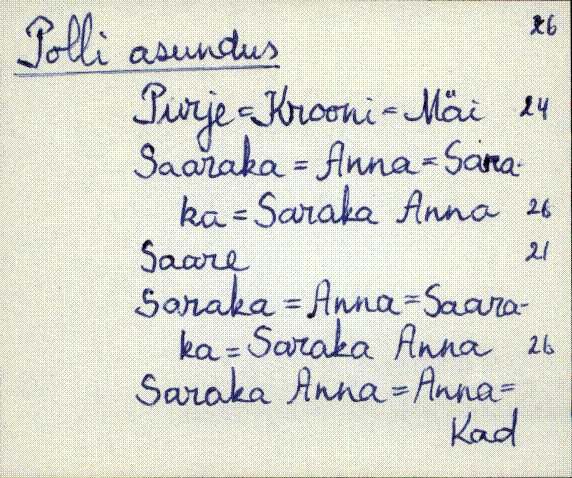 26
Polli asundus
Purje = Krooni = Mäi 24
Saaraka = Anna = Sara-
ka = Saraka Anna 26
Saare 21
Saraka = Anna = Saara-
ka = Saraka Anna 26
Saraka Anna = Anna =
Kad